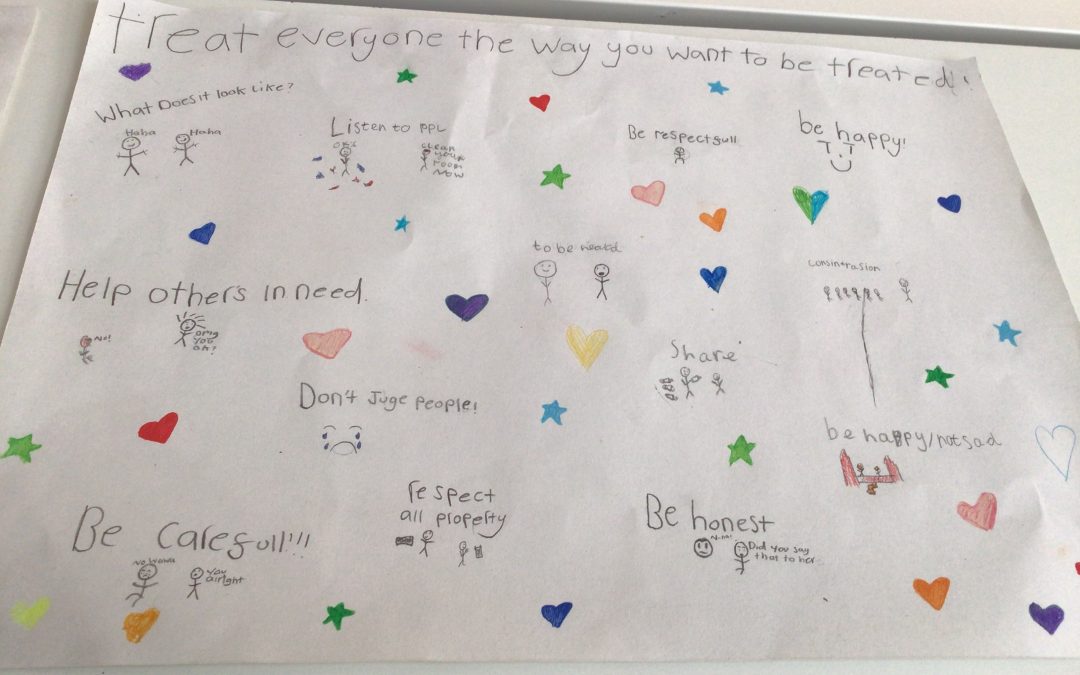 treat everyone the way you want to be treated!
What Does it look like?
Haha Haha
Listen to PPL
OK!
CLEAN
your
room
NOW
Be respectfull
be happy!
to be
consintrasion
Help others in need.
No!
omg
you
ok?
Share
Don't Juge people!
be happy/not sad
respect
all property
Be honest
Did you say
that to her
Be carefull!!!
you
alright